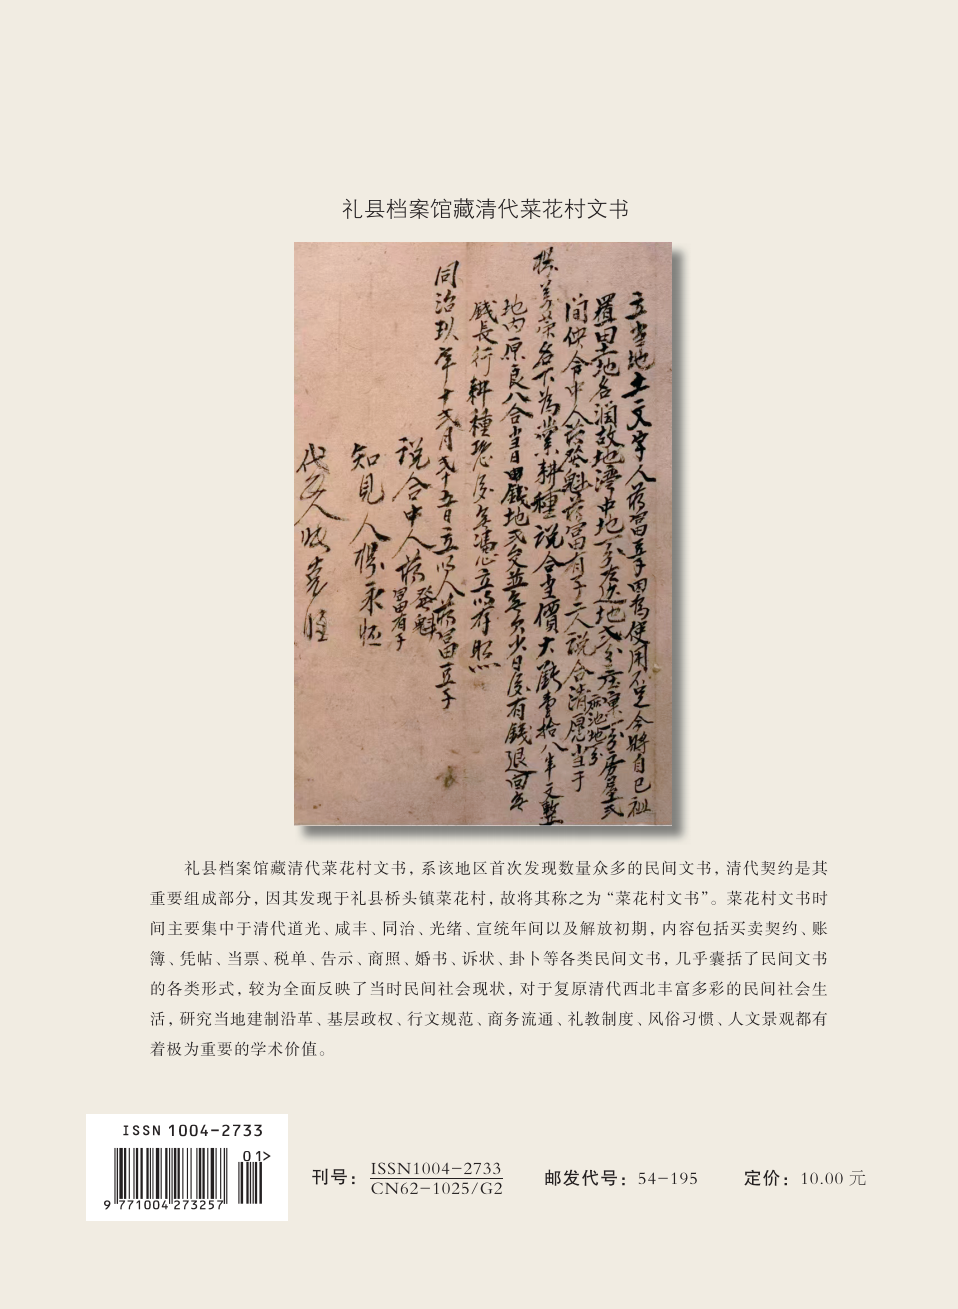 礼县档案馆藏清代菜花村文书
立当地土文字人蒋富立子因为使用不足今将自己祉
置田土地名涧故地湾中地一分左边地弍分庄窠一分房屋弍
间央令中人蒋发魁蒋富有子二人说合清愿当于
地一分
荣名下为业耕种说合当价大钱壹拾八千文整
地内原良八合当日由钱地弍交并无欠少日后有钱退回无
钱长行耕种恐后无凭立约存照
同治玖年十弍月弍十五日立约人蒋富立子
说合中人蒋发魁
富有子
知见人杨永恒
代文人
礼县档案馆藏清代菜花村文书，系该地区首次发现数量众多的民间文书，清代契约是其
重要组成部分，因其发现于礼县桥头镇菜花村，故将其称之为“菜花村文书”。菜花村文书时
间主要集中于清代道光、咸丰、同治、光绪、宣统年间以及解放初期，内容包括买卖契约、账
簿、凭帖、当票、税单、告示、商照、婚书、诉状、卦卜等各类民间文书，几乎囊括了民间文书
的各类形式，较为全面反映了当时民间社会现状，对于复原清代西北丰富多彩的民间社会生
活，研究当地建制沿革、基层政权、行文规范、商务流通、礼教制度、风俗习惯、人文景观都有
着极为重要的学术价值。
ISSN 1004-2733
01>
9 771004 273257
刊号：ISSN1004-2733
CN62-1025/G2
邮发代号：54-195
定价：10.00 元